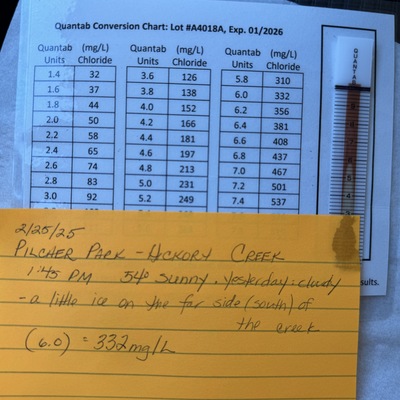 Quantab Conversion Chart: Lot #A4018A, Exp. 01/2026
Quantab (mg/L) Quantab (mg/L) Quantab (mg/L)
Units Chloride Units Chloride Units Chloride
1.4 32 3.6 126 5.8 310
1.6 37 3.8 138 6.0 332
1.8 44 4.0 152 6.2 356
2.0 50 4.2 166 6.4 381
2.2 58 4.4 181 6.6 408
2.4 65 4.6 197 6.8 437
2.6 74 4.8 213 7.0 467
2.8 83 5.0 231 7.2 501
3.0 92 5.2 249 7.4 537
QUANTAB
sults.
2/25/25
PILCHER PARK - HICKORY CREEK
1:45 PM 54° sunny. yesterday: cloudy
- a little ice on the far side (south) of
the creek
(6.0) = 332 mg/L